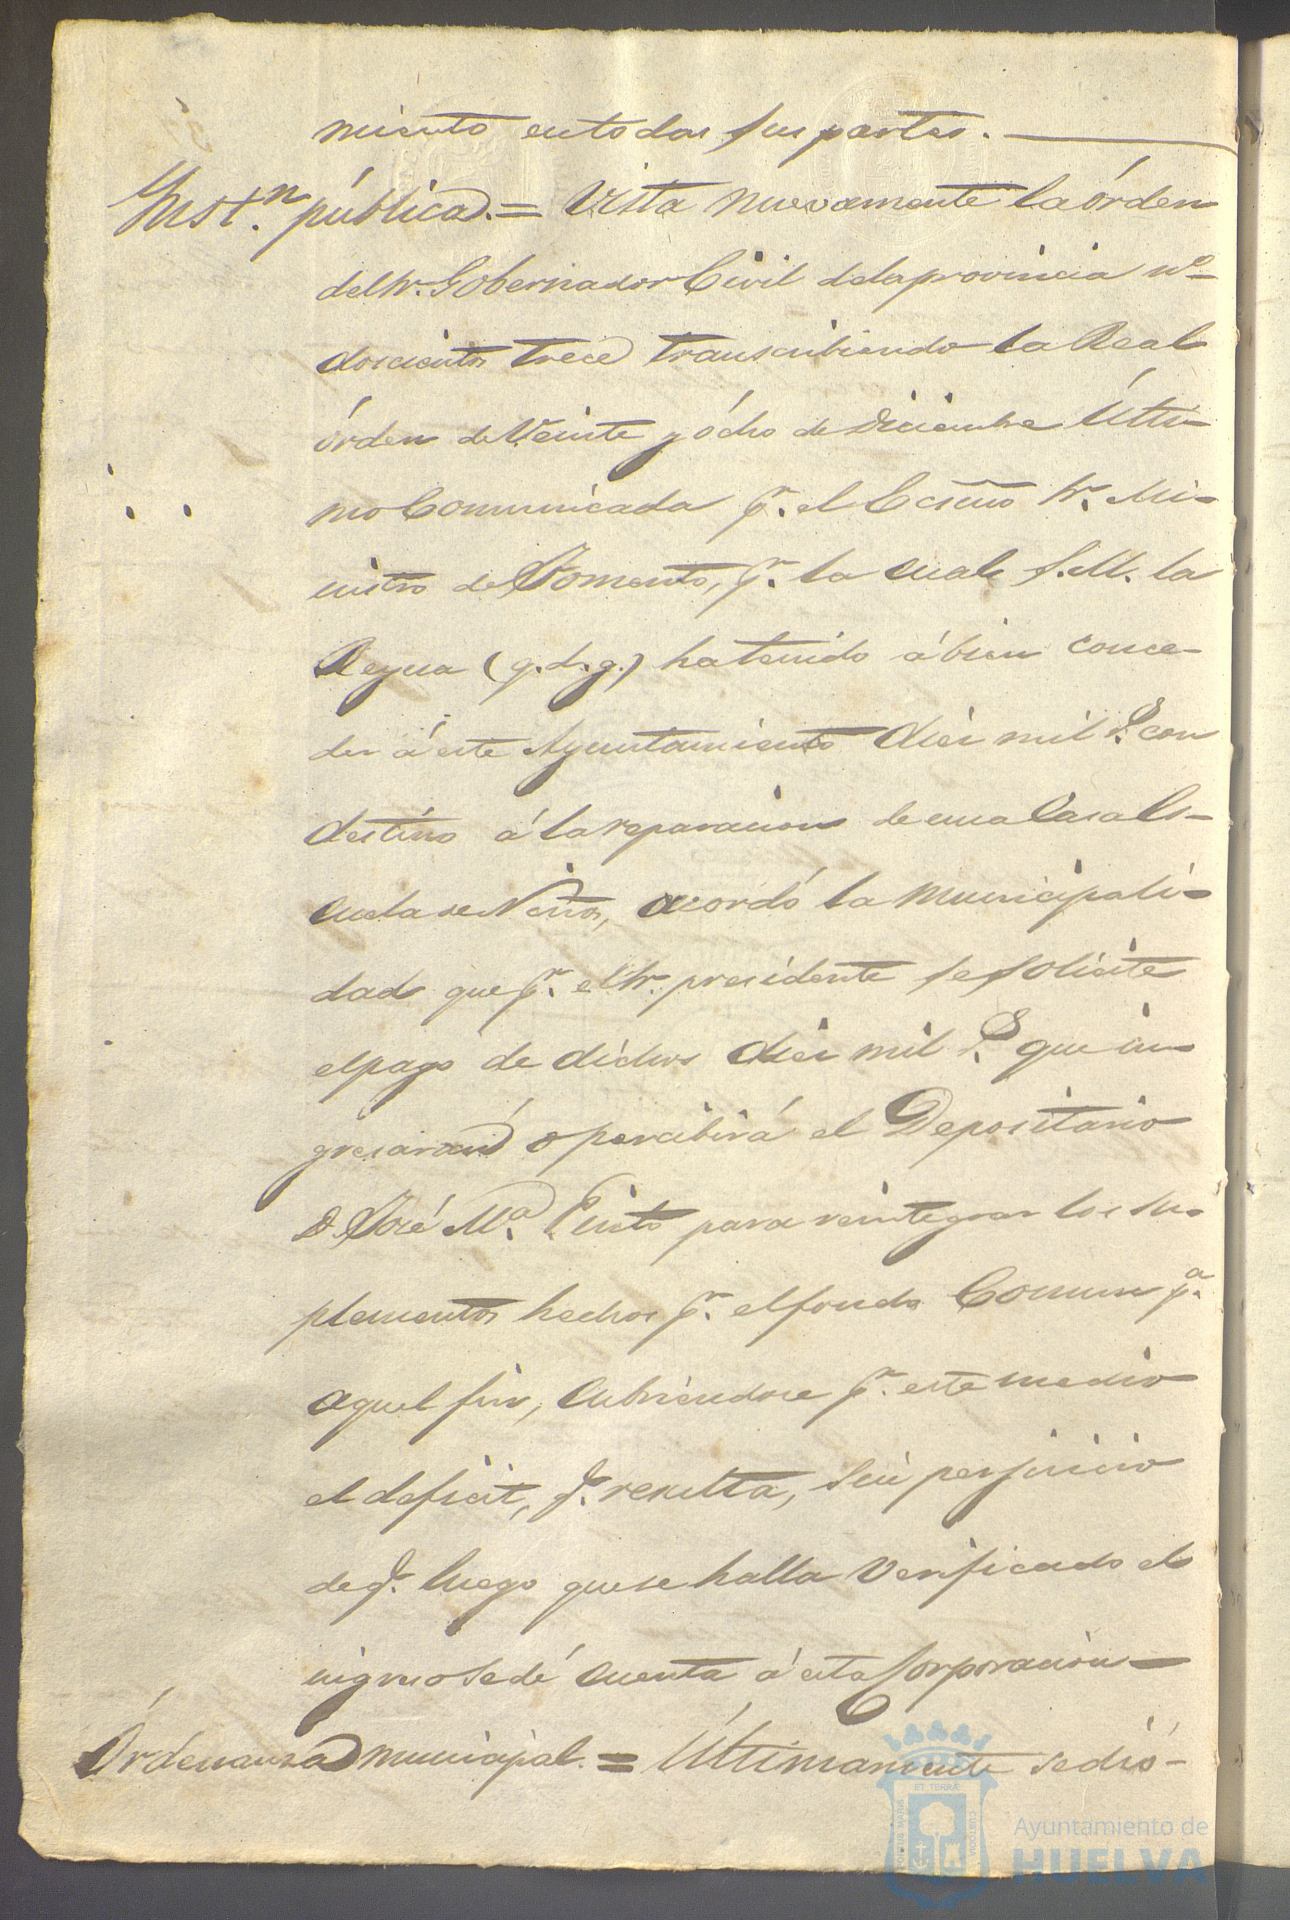 miento en todas sus partes.
Inst.n pública. = Vista nuevamente la órden
del Sr. Gobernador Civil de la provincia nº
doscientos trece transcribiendo la Real
órden de Veinte y ócho de Diciembre Últi-
mo Comunicada p.r el Ecsmo Sr. Mi-
nistro de Fomento, p.r la cual S.M. la
Reyna (q.d.g.) ha tenido á bien conce-
der á este Ayuntamiento diez mil r.s con
destino á la reparacion de una Casa Es-
cuela de Niños, acordó la Municipali-
dad que p.r el Sr. presidente se solicite
el pago de dichos diez mil r.s que in
gresará o percibirá el Depositario
D José M.a Pinto para reintegrar los su-
plementos hechos p.r el fondo Comun p.a
aquel fin, cubriendose p.r este medio
el deficit, q. resulta, sin perjuicio
de q. luego que se halla Verificado el
ingreso se dé cuenta á esta Corporacion
Órdenanza municipal. = Últimamente se dió-
ET TERRAE
Ayuntamiento de
HUELVA